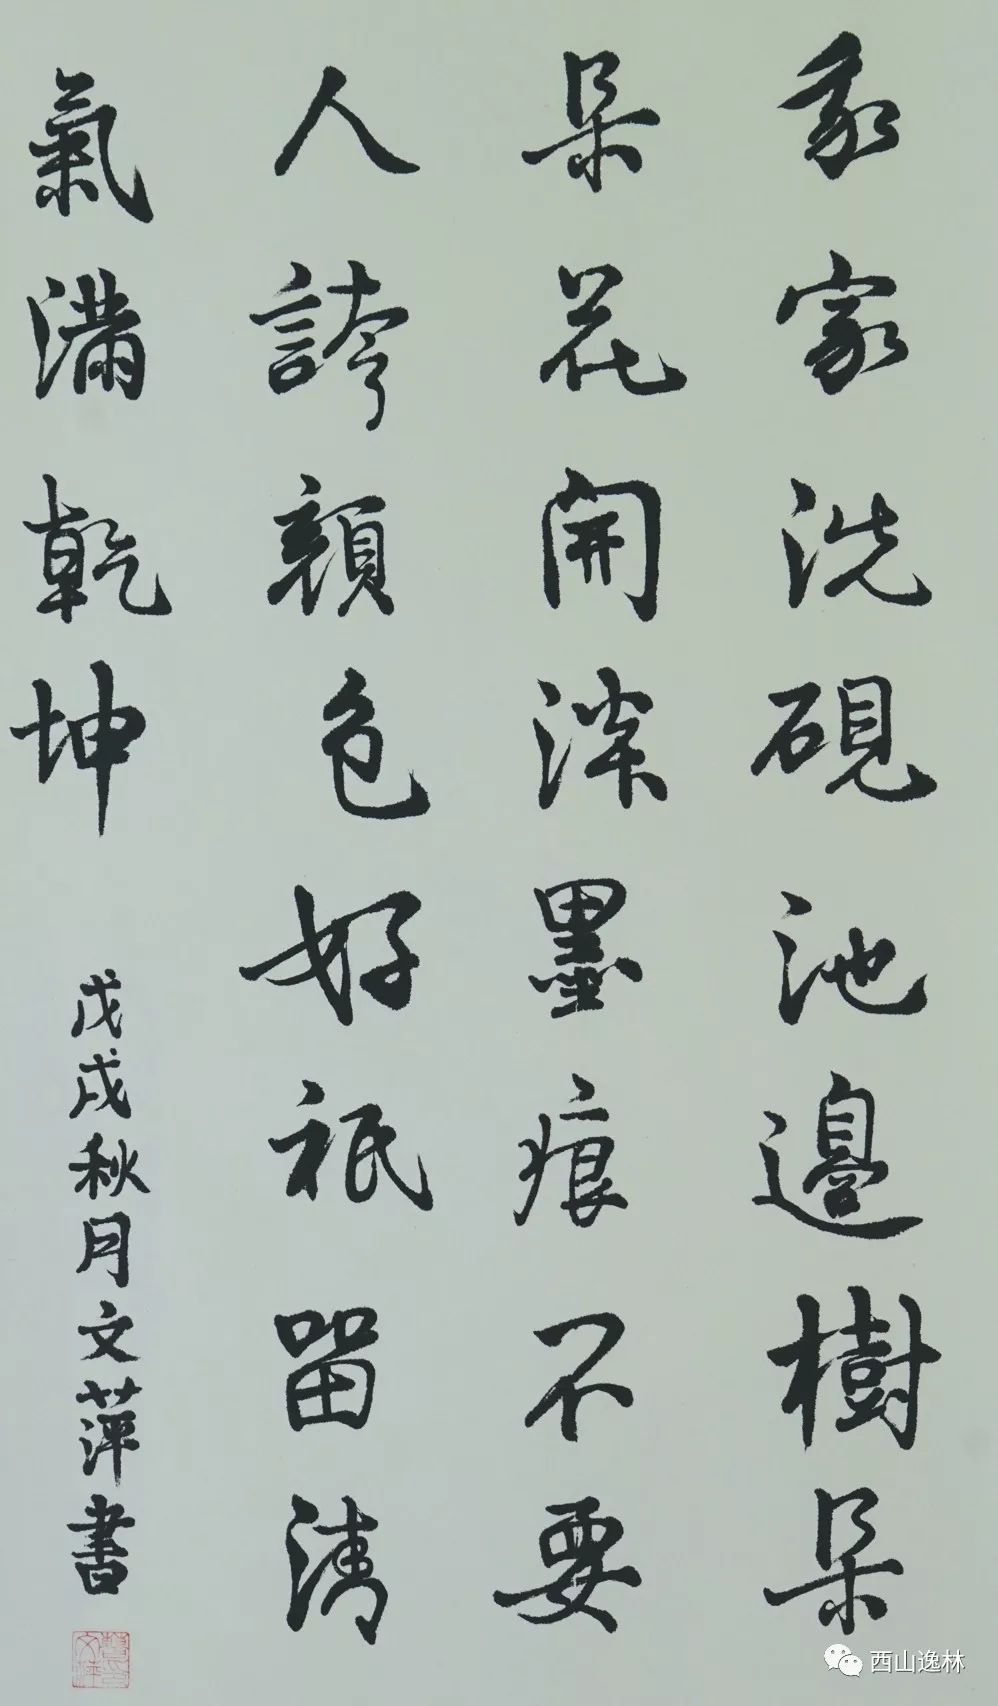 我家洗硯池邊樹朵
朵花開淡墨痕不要
人誇顏色好祇留清
氣滿乾坤
戊戌秋月文萍書
西山逸林